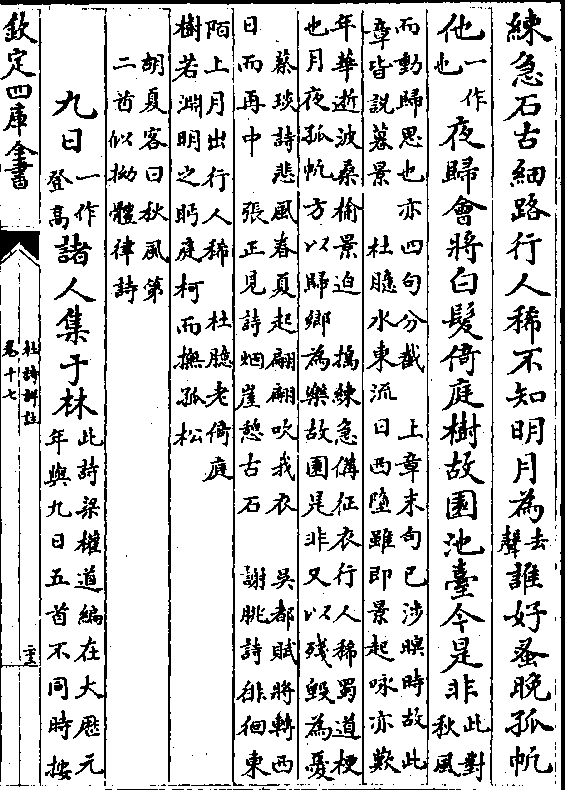 練急石古細路行人稀不知明月為去聲誰好蚤晚孤帆
他一作也夜歸會將白髮倚庭樹故園池臺今是非此對秋風
而動歸思也亦四句分截　上章末句已涉暝時故此
章皆説暮景　杜臆水東流日西墜雖即景起咏亦歎
年華逝波桑榆景迫　擣練急備征衣行人稀蜀道梗
也月夜孤帆方以歸鄉為樂故園是非又以殘毁為憂
蔡琰詩悲風春夏起翩翩吹我衣　吳都賦將轉西
日而再中　張正見詩烟崖憩古石　謝朓詩徘徊東
陌上月出行人稀　杜臆老倚庭
樹若淵明之眄庭柯而撫孤松
胡夏客曰秋風第
二首似拗體律詩
九日一作登高諸人集于林此詩梁權道編在大厯元
年與九日五首不同時按
欽定四庫全書
杜詩詳註
卷十七